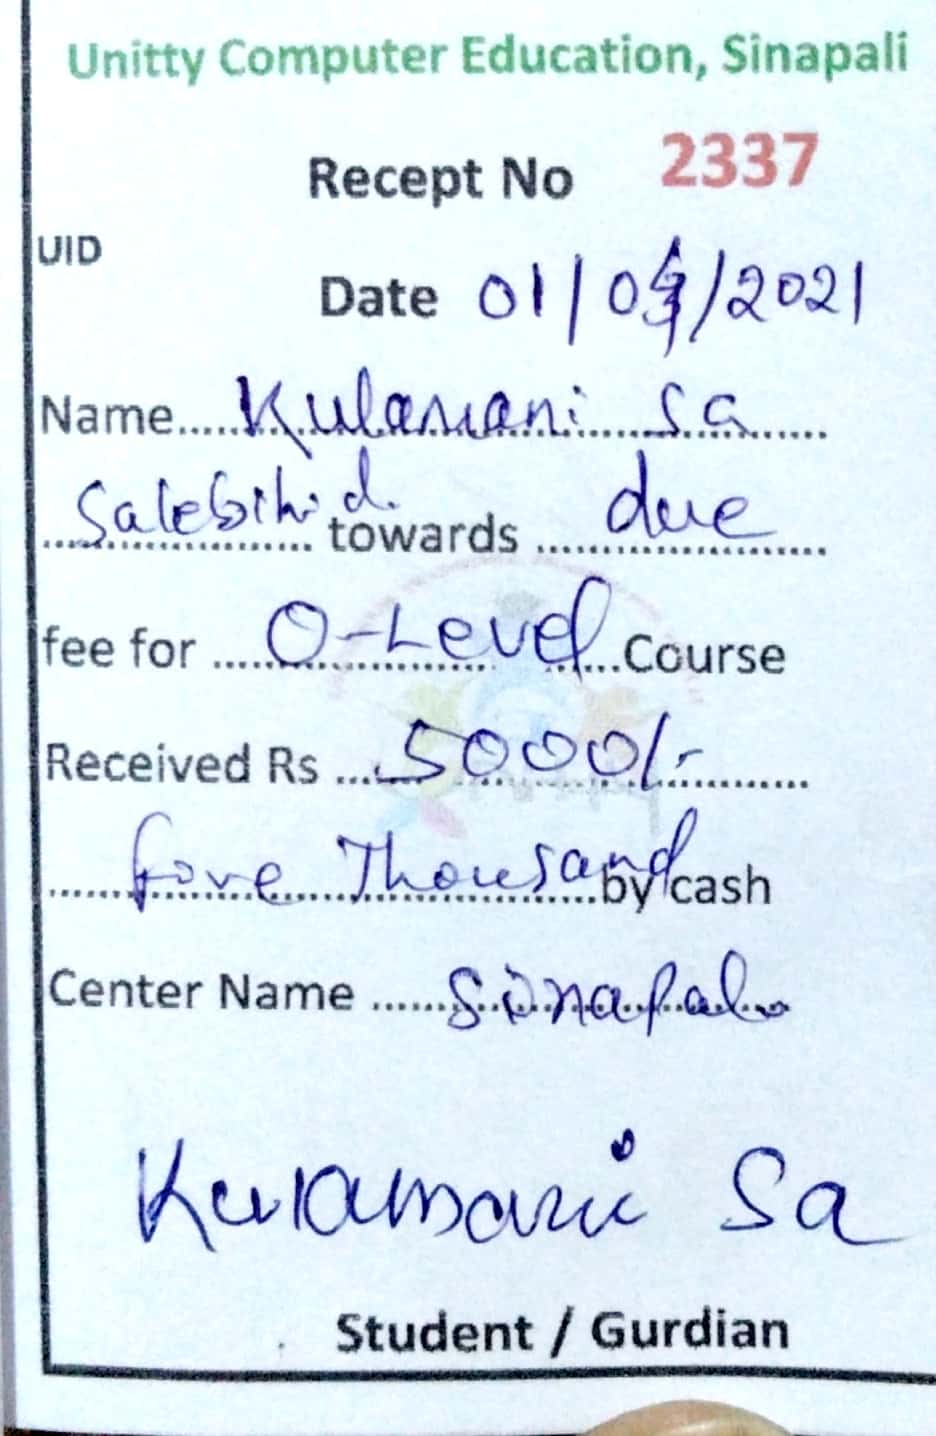 Unitty Computer Education, Sinapali
Recept No 2337
UID
Date 01/0 /2021
Name.....Kulamani Sa
Salebihid. towards due
fee for O-Level Course
Received Rs 5000/-
five Thousand by cash
Center Name Sinapali
Kulamani Sa
Student / Gurdian